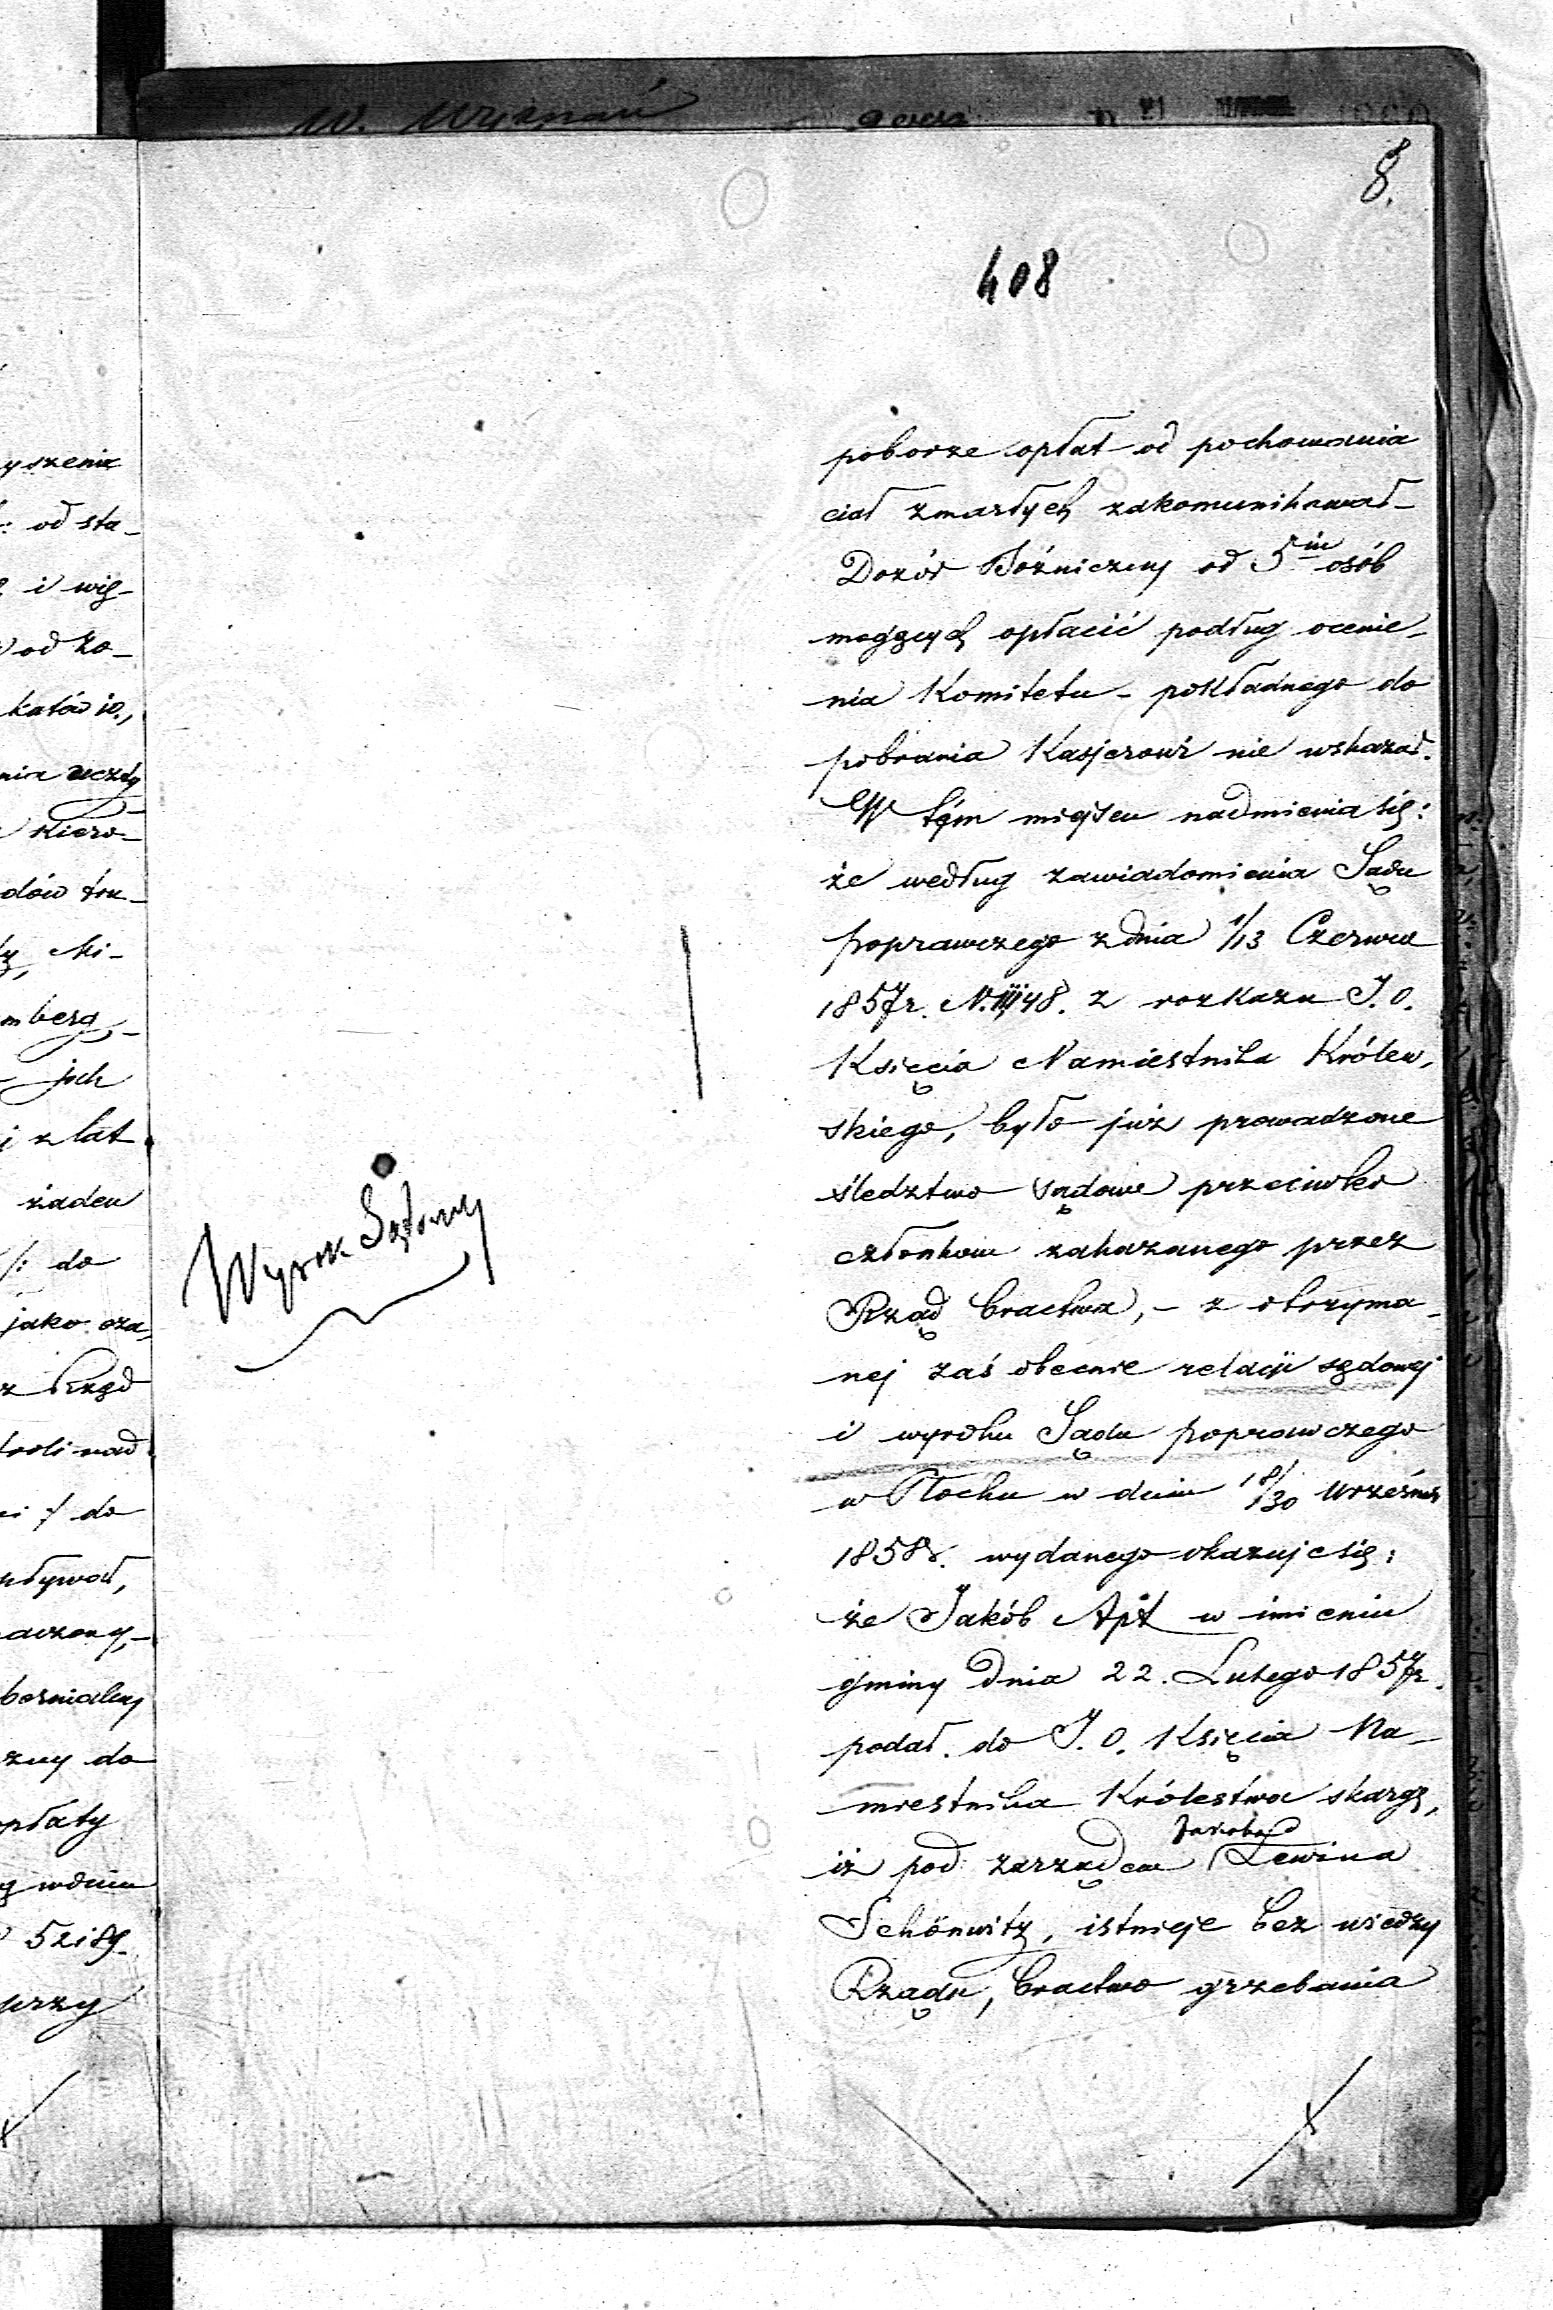 8.
408
poborze opłat od pochowania
ciał zmarłych zakomunikował
Dozór Bóżniczny od 5ciu osób
mogących opłacić podług ocenie-
nia Komitetu - pokładnego do
pobrania Kasjerowi nie wskazał.
W tém miejscu nadmienia się:
że według zawiadomienia Sądu
poprawczego z dnia 1/13 Czerwca
1857r. N. 48. z rozkazu J. O.
Księcia Namiestnika Królew,
skiego, było już prowadzone
śledztwo sądowe przeciwko
członkom zakazanego przez
Rząd bractwa, - z otrzyma-
nej zaś obecnie relacji sądowej
i wyroku Sądu poprawczego
w Płocku w dniu 18/30 Wrześnis
1858r. wydanego okazuje się:
że Jakób Apt w imieniu
gminy dnia 22. Lutego 1857r.
podał do J. O. Księcia Na-
miestnika Królestwa skargę,
iż pod zarządem Jakoba Lewina
Schönwitz, istnieje bez wiedzy
Rządu, bractwo grzebania
Wyrok Sądowy
yszenia
od sta-
i wię-
od żo-
katów io.,
nia uczty
kiero-
dów tru-
mberg,
ich
z lat
żaden
/: do
jako oza,
Rząd
troli nad
:/ do
czony,-
bernialny
zny do
opłaty
wdniu
przy